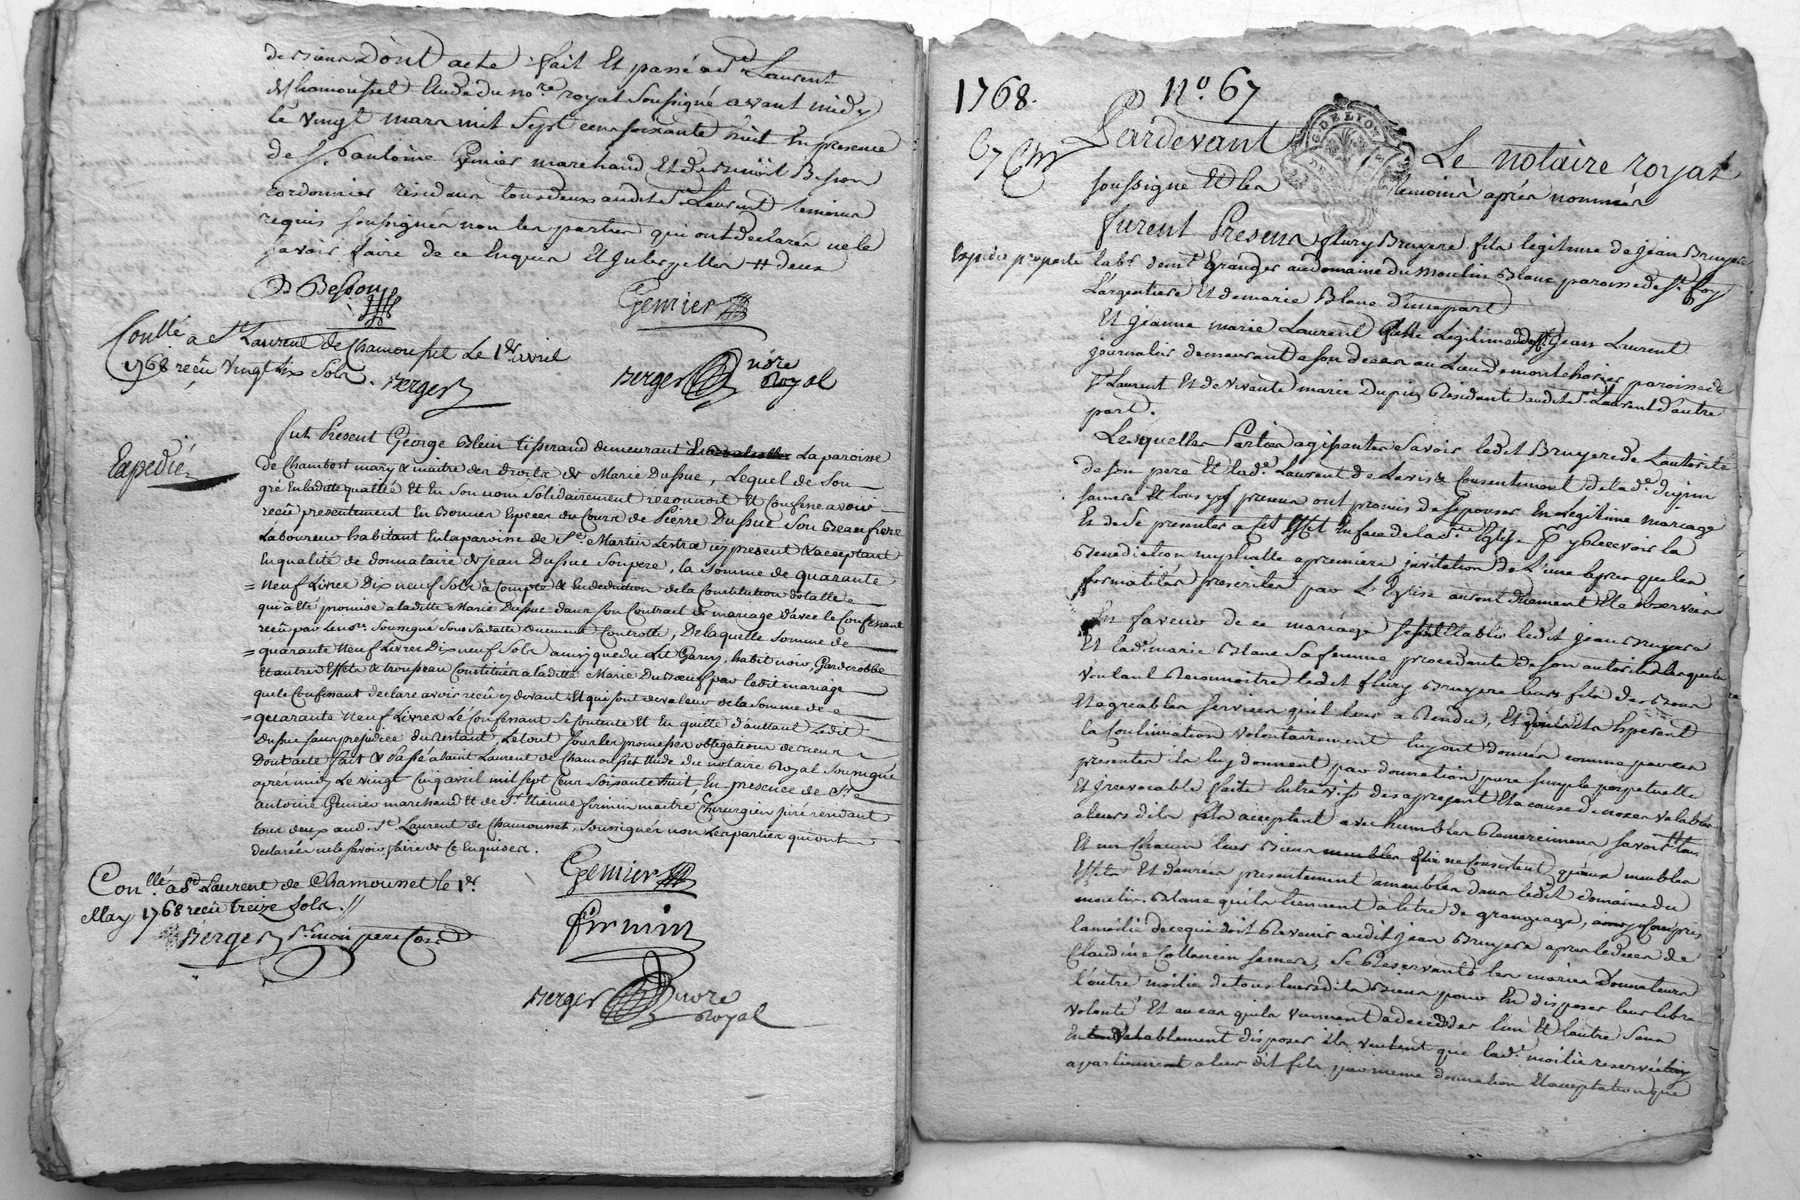 de Sions Dont acte fait Et passé aud. St Laurent
de Chamousset Etude du nore royal soussigné avant midy
le vingt mars mil sept cens soixante huit En presence
de Sr antoine Gemier marchand Et de Benoit Besson
cordonnier residans tous deux audit St Laurent temoins
requis soussignés non les parties qui ont declarés ne le
savoir faire de ce Enquis Et Interpellés # deux
B Besson Gemier
Conllé a St Laurent de Chamousset Le 1er avril
1768 reçû vingt six Sols. Berger
Berger nore Royal
Expedié
fut Present George Blein tisserand demeurant La paroisse
de Chambost mary & maitre des droits de Marie Dussuc, Lequel de Son
gré En laditte qualité Et En Son nom Solidairement reconnoit Et Confesse avoir
reçû presentement En Bonnes Especes du Cours de Pierre Dussuc Son Beaufrere
Laboureur habitant En la paroisse de St Martin Lestra icy present & acceptant
En qualité de donnataire de Jean Dussuc Son pere, la Somme de quarante
= neuf Livres Dix neuf Sols à Compte & En deduction de la Constitution dotalle
qui a Eté promise a laditte Marie Dussuc dans Son Contrat de mariage d'avec le Confessant
reçû par Le nore Soussigné Sous Sa datte duement Controllé, De laquelle Somme de
= quarante Neuf Livres Dix neuf Sols ainsy que du Lit Garny, habit noir, Garderobbe
Et autres Effets & trousseau Constitués a laditte Marie par ledit mariage
que le Confessant declare avoir reçû cy devant Et qui sont de valeur de la Somme de
= quarante Neuf Livres Le Confessant Se Contente Et En quitte d'auttant Ledit
Dussuc Sans prejudice du restant, Le tout Sous les promesses obligations
Dont acte fait & Passé a Saint Laurent de Chamousset Etude du notaire Royal Soussigné
aprés midy Le vingt Cinq avril mil sept Cens Soixante huit En presence de Sr
antoine Gemier marchand Et de Sr Etienne firmin maitre Chirurgien juré residant
tous deux aud. St Laurent de Chamousset, Soussignés non Les parties qui ont
declarées ne le Savoir faire de Ce Enquises.
Conllé a St Laurent de Chamousset le 1er
May 1768 reçû treize Sols.
Gemier
Berger
firmin
Berger nore
Royal
1768. no. 67
Pardevant Le notaire royal
soussigné Et les temoins aprés nommés
furent Presens fleury Bruyere fils legitime de Jean Bruyere
Expedié
labr demt Granger au domaine du moulin Blanc paroisse de St foy
L'argentiere Et de marie Blanc d'une part
Et Jeanne marie Laurent fille Legitime de Jean Laurent
journalier demeurant a son deces au Lieu de paroisse de
St Laurent Et de vivante marie Dupin Residante audit St Laurent d'autre
part.
Lesquelles Parties agissantes Savoir ledit Bruyere de Lautorité
de Son pere Et lade Laurent de Lavis & Consentement de lade dupin
Sa mere Et tous presens ont promis de Sepouser En Legitime mariage
Et de Se presenter a cet Effet En face de la Ste Eglise p y Recevoir la
Benediction nuptialle a premiere invitation de L'une aprés que les
formalités prescrittes par L'Eglise auront duement Eté observées
En faveur de ce mariage Sont Etablis ledit Jean Bruyere
Et lade marie Blanc Sa femme procedante de son autorité Lesquels
voulant Reconnoitre ledit fleury Bruyere leurs fils des Bons
Et agreables services quil leur a Rendu, Et dont ils Esperent
la Continuation volontairement luy ont donnés comme par ces
presentes ils luy donnent par donnation pure simple perpetuelle
Et irrevocable faite Entre vifs des apresent Et a cause de noces valable
a leurs dit fils acceptant avec humbles Remerciemens Savoir tous
Et un Chacun leurs Biens meubles
Effets Et denrées presentement dans ledit domaine du
moulin Blanc quils tiennent a titre de grangeage,
la moitié de ce qui doit Revenir audit Jean Bruyere aprés le deces de
Claudine Sa mere, Se Reservants les mariés Donnateurs
l'autre moitié de tous leurs dits Biens pour En disposer a leur libre
volonté Et au cas quils vinssent a deceder l'un Et l'autre Sans
En valablement disposer ils veulent que lade moitié reservée
apartiennent a leur dit fils par meme donnation Et acceptation que